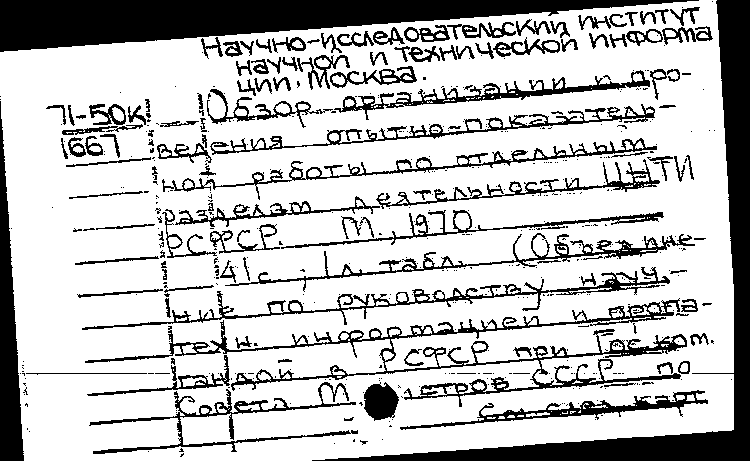 Научно-исследовательский институт
научной и технической информа
ции. Москва.
71-50К Обзор организации и про-
1667 ведения опытно-показатель-
ной работы по отдельным
разделам деятельности ЦНТИ
РСФСР. М., 1970.
41с ; 1л. табл. (Объедине-
ние по руководству науч.-
техн. информацией и пропа-
гандой в РСФСР при Гос.ком.
Совета М стров СССР по
См. след. карт